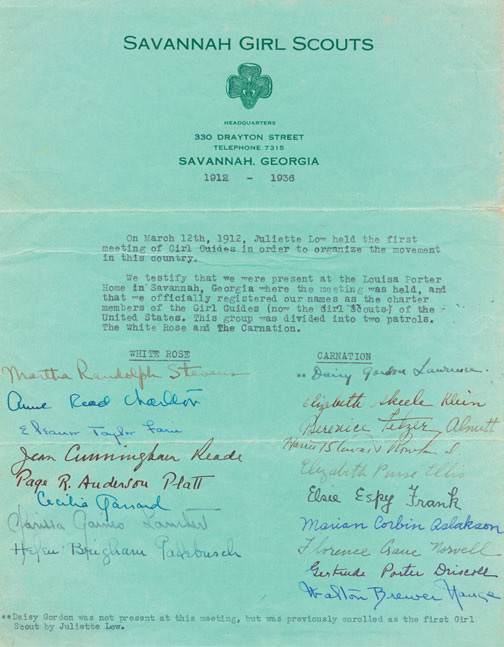 SAVANNAH GIRL SCOUTS
HEADQUARTERS
330 DRAYTON STREET
TELEPHONE 7315
SAVANNAH, GEORGIA
1912 - 1936
On March 12th, 1912, Juliette Low held the first
meeting of Girl Guides in order to organize the movement
in this country.
We testify that we were present at the Louisa Porter
Home in Savannah, Georgia where the meeting was held, and
that we officially registered our names as the charter
members of the Girl Guides (now the Girl Scouts) of the
United States. This group was divided into two patrols.
The White Rose and The Carnation.
WHITE ROSE
Martha Randolph Stevens
Anne Read Charlton
Eleanor Taylor
Jean Cunningham Reade
Page R. Anderson Platt
Cecilia Garrard
Clarissa Gaines Lambert
Helen Brigham Padebusch
CARNATION
**Daisy Gordon Lawrence.
Elizabeth Steele Klein
Berenice
Elizabeth Purse Ellis
Elsie Espy Frank
Marian Corbin Aslakson
Florence Crane Norvell
Gertrude Porter Driscoll
Walton Brewer
**Daisy Gordon was not present at this meeting, but was previously enrolled as the first Girl
Scout by Juliette Low.